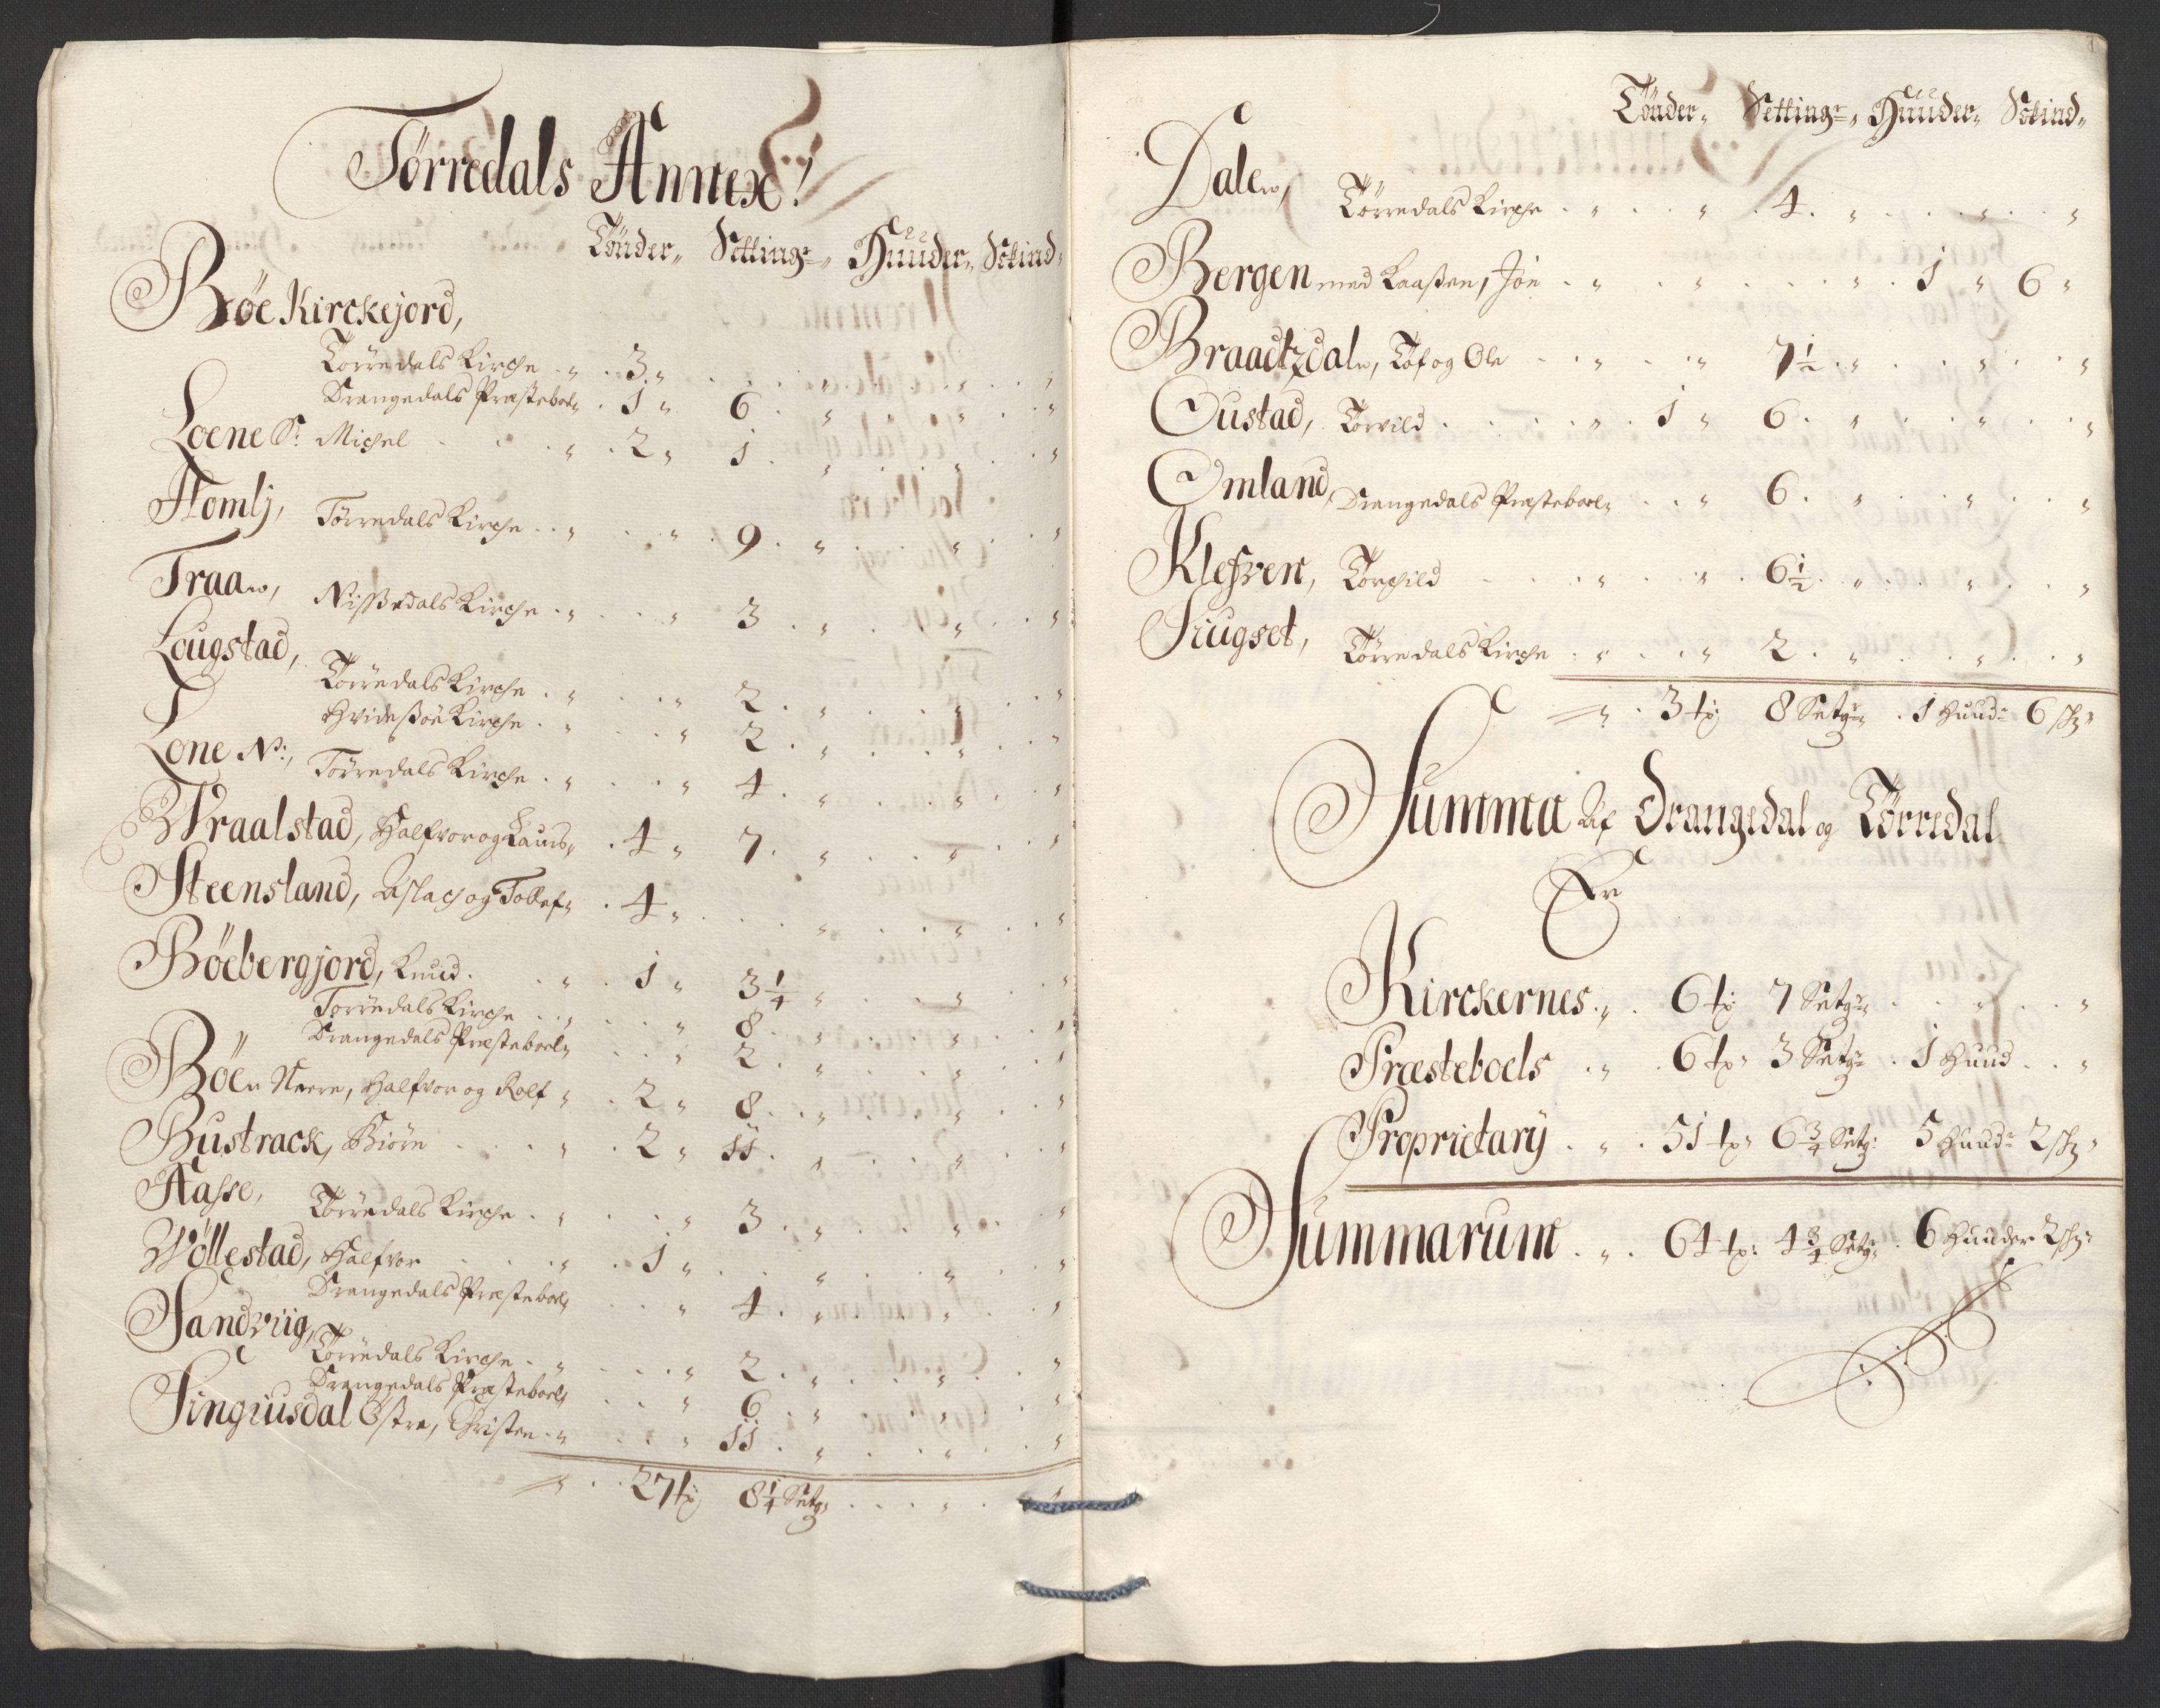 Tørredals Annex!
Tönder„ Setting:„ Huuder„ Schind„
Böe Kirckejord,
Törredals Kirche „ 3 „ „ „ „
Drangedals Præsteboel„ 1 „ 6 „ „ „
Loene S: Michel „ 2 „ 1 „ „ „
Homlj, Törredals Kirche „ „ 9 „ „ „
Traaen, Nissedals Kirche „ „ 3 „ „ „
Lougstad,
Törredals Kirche „ „ 2 „ „ „
Hvidesöe Kirche „ „ 2 „ „ „
Lone N:, Törredals Kirche „ „ 4 „ „ „
Wraalstad, Halfvor og Laurs„ 4 „ 7 „ „ „
Steensland, Aslach og Tollef„ 4 „ „ „ „
Böebergjord, Knud „ 1 „ 3 1/4 „ „ „
Törredals Kirche „ „ 8 „ „ „
Drangedals Præsteboel„ „ 2 „ „ „
Böen Neere, Halfvor og Rolf „ 2 „ 8 „ „ „
Bustrack, Biörn „ 2 „ 11 „ „ „
Aasse, Törredals Kirche „ „ 3 „ „ „
Wöllestad, Halfvor „ 1 „ „ „ „
Drangedals Præsteboel„ „ 4 „ „ „
Sandviig,
Törredals Kirche „ „ 2 „ „ „
Drangedals Præsteboel„ „ 6 „ „ „
Singiusdal Östre, Christen „ „ 11 „ „ „
„ 27 tz 8 1/4 Setg: „ „
Tönder„ Setting:„ Huuder„ Schind„
Dalen, Törredals Kirche „ „ 4 „ „ „
Bergen med Kaassen, Jön „ „ „ 1 „ 6 „
Braadtzdalen, Tof og Ole „ „ 7 1/2 „ „ „
Oustad, Torvild „ 1 „ 6 „ „ „
Omland, Drangedals Præsteboel„ „ 6 „ „ „
Klefven, Torchild „ „ 6 1/2 „ „ „
Siugset, Törredals Kirche „ „ 2 „ „ „
„ 3 tz 8 Setg: 1 Huud: 6 schz„
Summa Af Drangedal og Törredal
Er
Kirckernes „ 6 tz 7 Setg: „ „
Præsteboels „ 6 tz 3 Setg: 1 Huud „
Proprietary „ 51 tz 6 3/4 Setg: 5 Huud: 2 schz„
Summarum „ 64 tz: 4 3/4 Setg: 6 Huuder 2 schz„